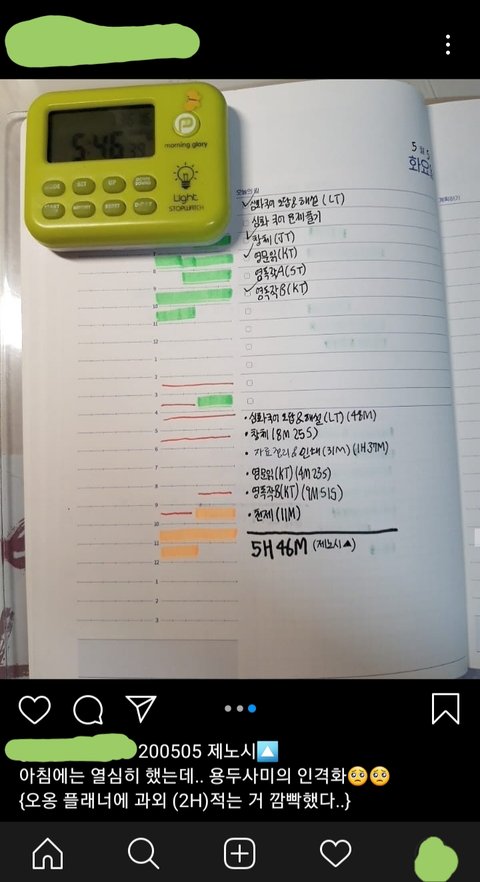 5:46
morning glory
MODE SET UP DOWN
START MEMORY RESET
Light
STOPWATCH
5 월 5
화요일
오늘의 할
심화국어 오답&해설 (LT)
심화 국어 문제풀기
창체 (JT)
영문읽(KT)
영독작A(ST)
영독작B(KT)
8
9
10
11
12
1
2
3
4
5
6
7
8
9
10
11
12
1
2
3
• 심화국어 오답&해설 (LT) (48M)
• 창체 (8M 25S)
• 자료정리&인쇄 (31M) (1H 37M)
• 영문읽(KT) (4M 23S)
• 영독작B(KT) (9M 51S)
(11M)
5H 46M (제노시▲)
200505 제노시🔼
아침에는 열심히 했는데.. 용두사미의 인격화🥺🥺
{오옹 플래너에 과외 (2H)적는 거 깜빡했다..}